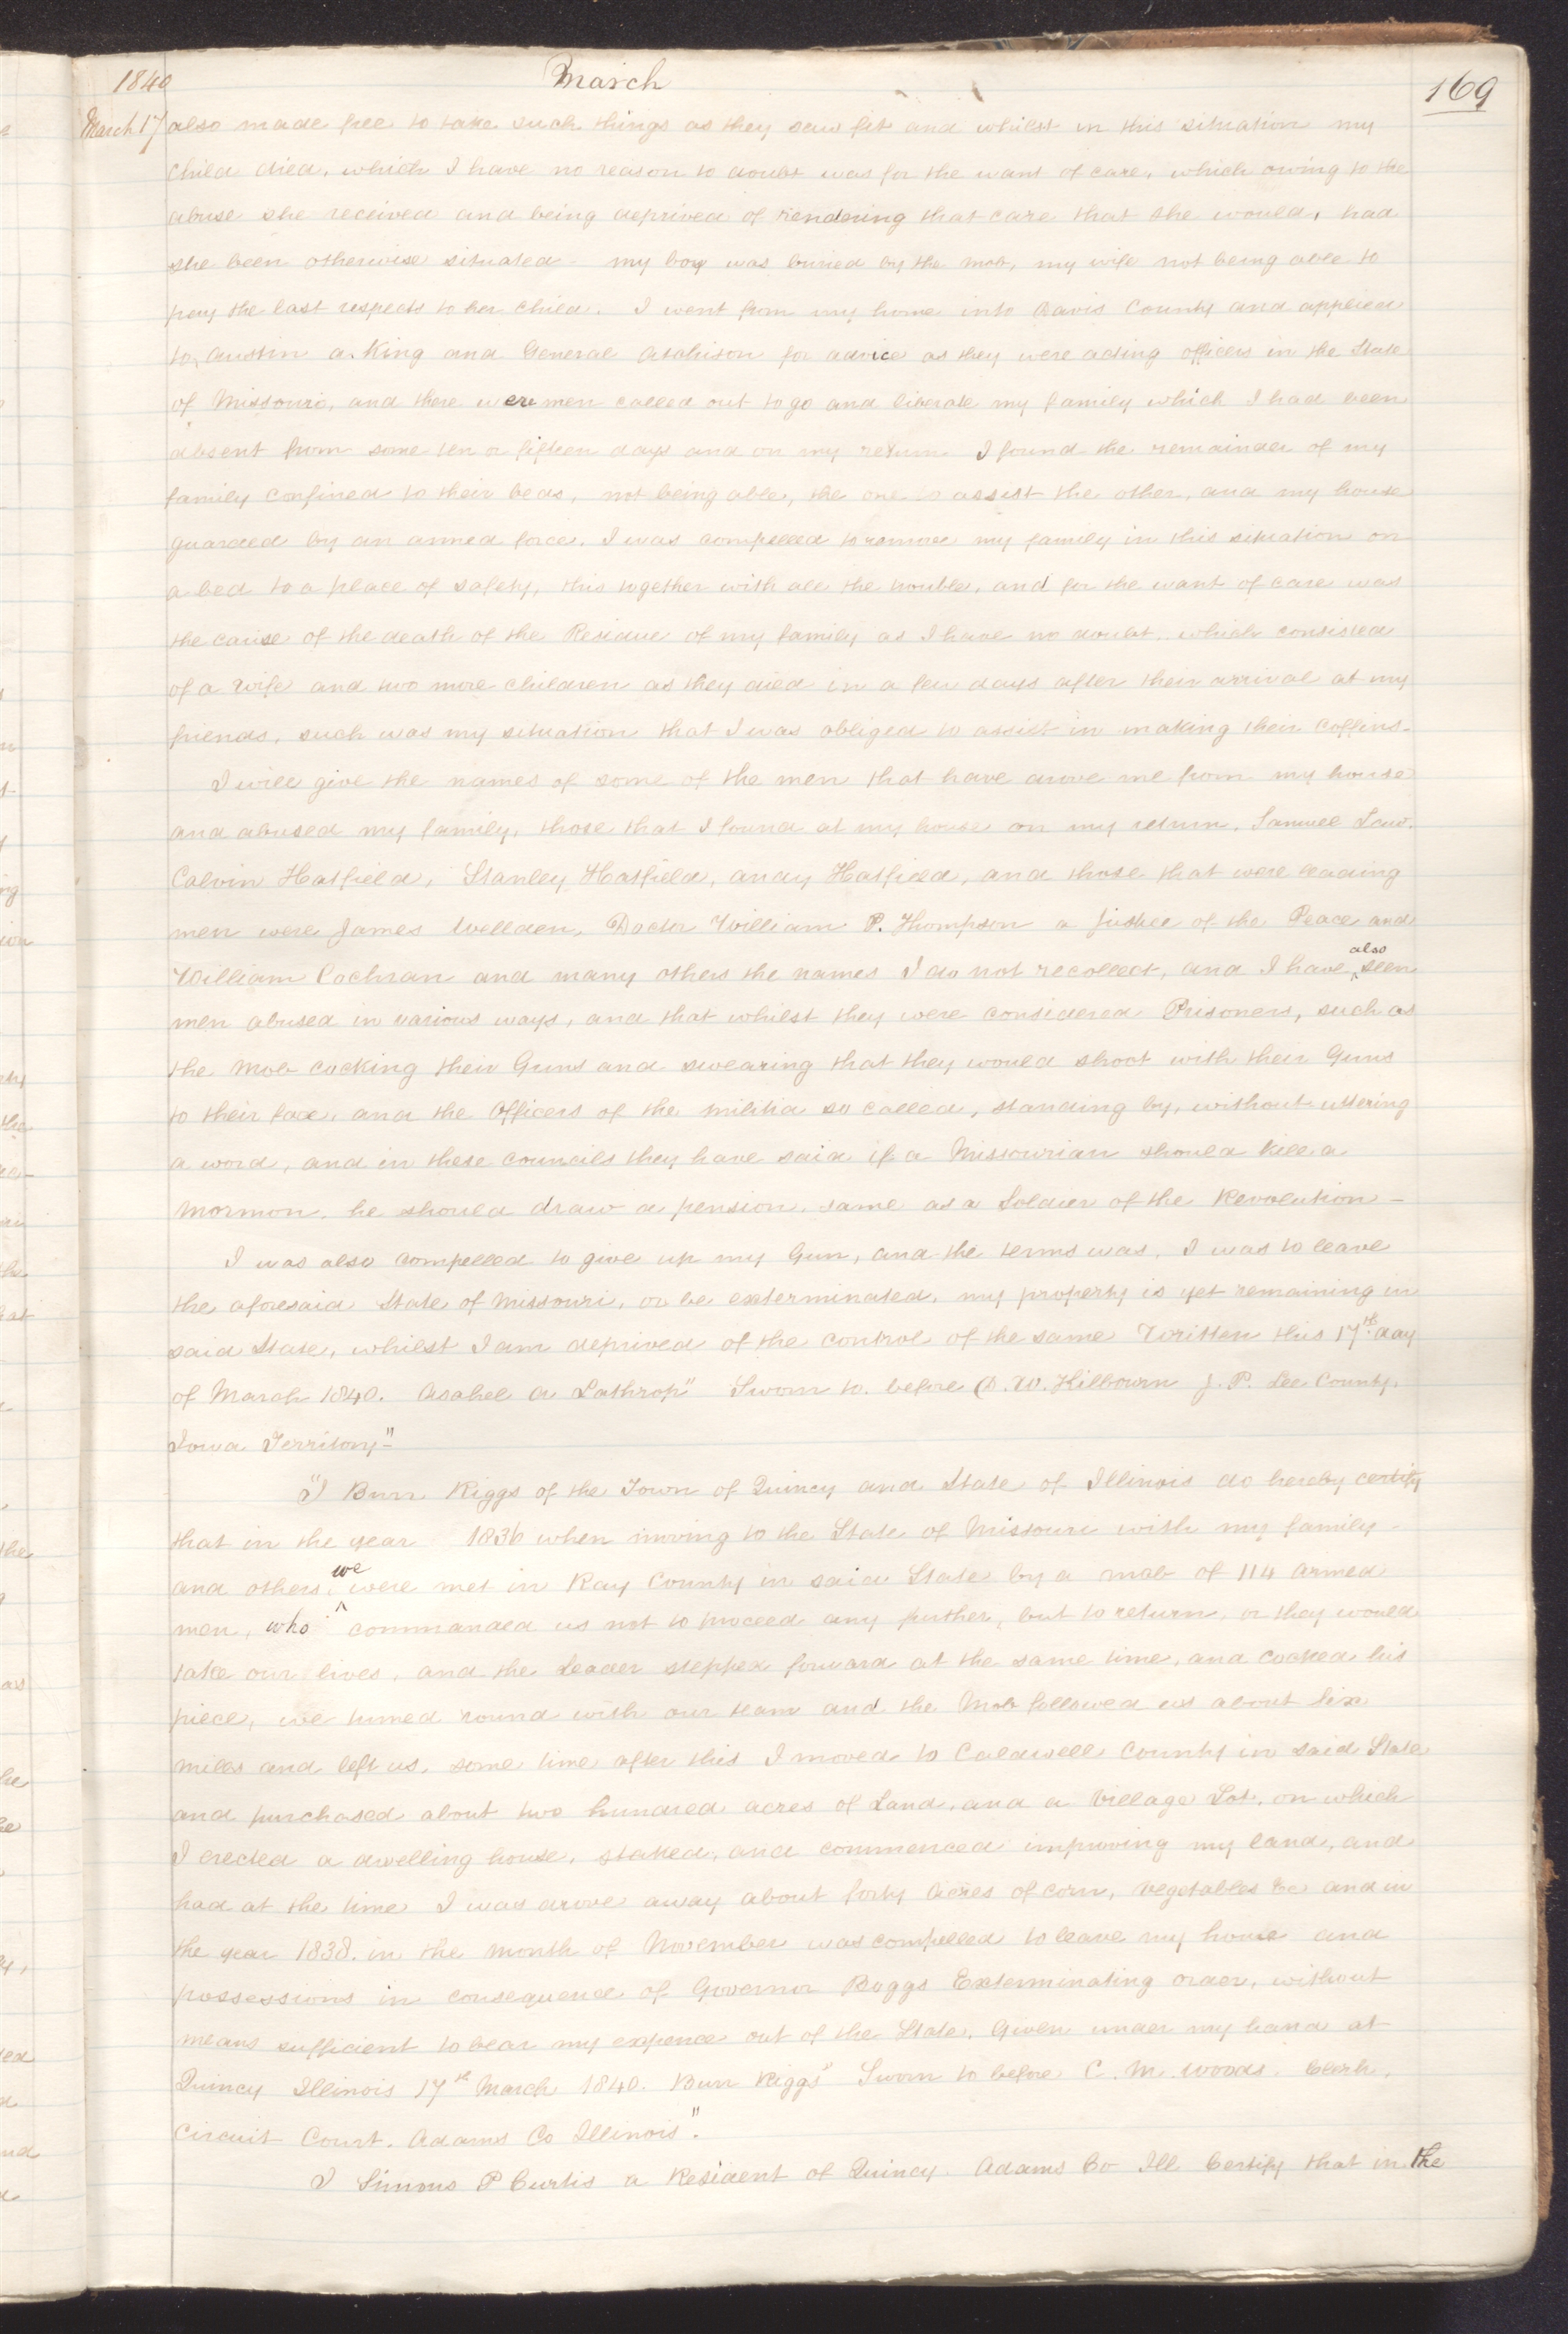 1840
March
169
March 17
also made free to take such things as they saw fit and whilst in this situation my
child died, which I have no reason to doubt was for the want of care, which owing to the
abuse she received and being deprived of rendering that care that she would, had
she been otherwise situated – my boy was buried by the mob, my wife not being able to
pay the last respects to her child. I went from my home into Davis County and applied
to, Austin A. King and General Atchison for advice as they were acting officers in the State
of Missouri, and there were men called out to go and liberate my family which I had been
absent from some ten or fifteen days and on my return I found the remainder of my
family confined to their beds, not being able, the one to assist the other, and my house
guarded by an armed force. I was compelled to remove my family in this situation on
a bed to a place of safety, this together with all the trouble, and for the want of care was
the cause of the death of the Residue of my family as I have no doubt, which consisted
of a wife and two more children as they died in a few days after their arrival at my
friends, such was my situation that I was obliged to assist in making their coffins.
I will give the names of some of the men that have drove me from my house
and abused my family, those that I found at my house on my return, Samuel Law.
Calvin Hatfield, Stanley Hatfield, Andy Hatfield, and those that were leading
men were James Wellden, Doctor William P. Thompson a Justice of the Peace and
William Cochran and many others the names I do not recollect, and I have ^also seen
men abused in various ways, and that whilst they were considered Prisoners, such as
the Mob cocking their Guns and swearing that they would shoot with their Guns
to their face, and the officers of the militia so called, standing by, without uttering
a word, and in these councils they have said if a Missourian should kill a
Mormon, he should draw a pension, same as a Soldier of the Revolution –
I was also compelled to give up my Gun, and the terms was, I was to leave
the aforesaid State of Missouri, or be exterminated, my property is yet remaining in
said State, whilst I am deprived of the control of the same Written this 17th day
of March 1840. Asahel A Lathrop" Sworn to before D. W. Kilbourn J. P. Lee County,
Iowa Territory"–
"I Burr Riggs of the Town of Quincy and State of Illinois do hereby certify
that in the year 1836 when moving to the State of Missouri with my family –
and others, ^we were met in Ray County in said State by a mob of 114 armed
men, who commanded us not to proceed any further, but to return, or they would
take our lives, and the Leader stepped forward at the same time, and cocked his
piece, we turned round with our team and the Mob followed us about six
miles and left us, some time after this I moved to Caldwell County in said State
and purchased about two hundred acres of Land, and a Village Lot, on which
I erected a dwelling house, staked, and commenced improving my land, and
had at the time I was drove away about forty Acres of corn, vegetables &c and in
the year 1838. in the month of November was compelled to leave my home and
possessions in consequence of Governor Boggs Exterminating order, without
means sufficient to bear my expence out of the State. Given under my hand at
Quincy Illinois 17th March 1840. Burr Riggs" Sworn to before C. M. Woods. Clerk,
Circuit Court. Adams Co Illinois".
I Simons P Curtis a Resident of Quincy Adams Co Ill Certify that in the